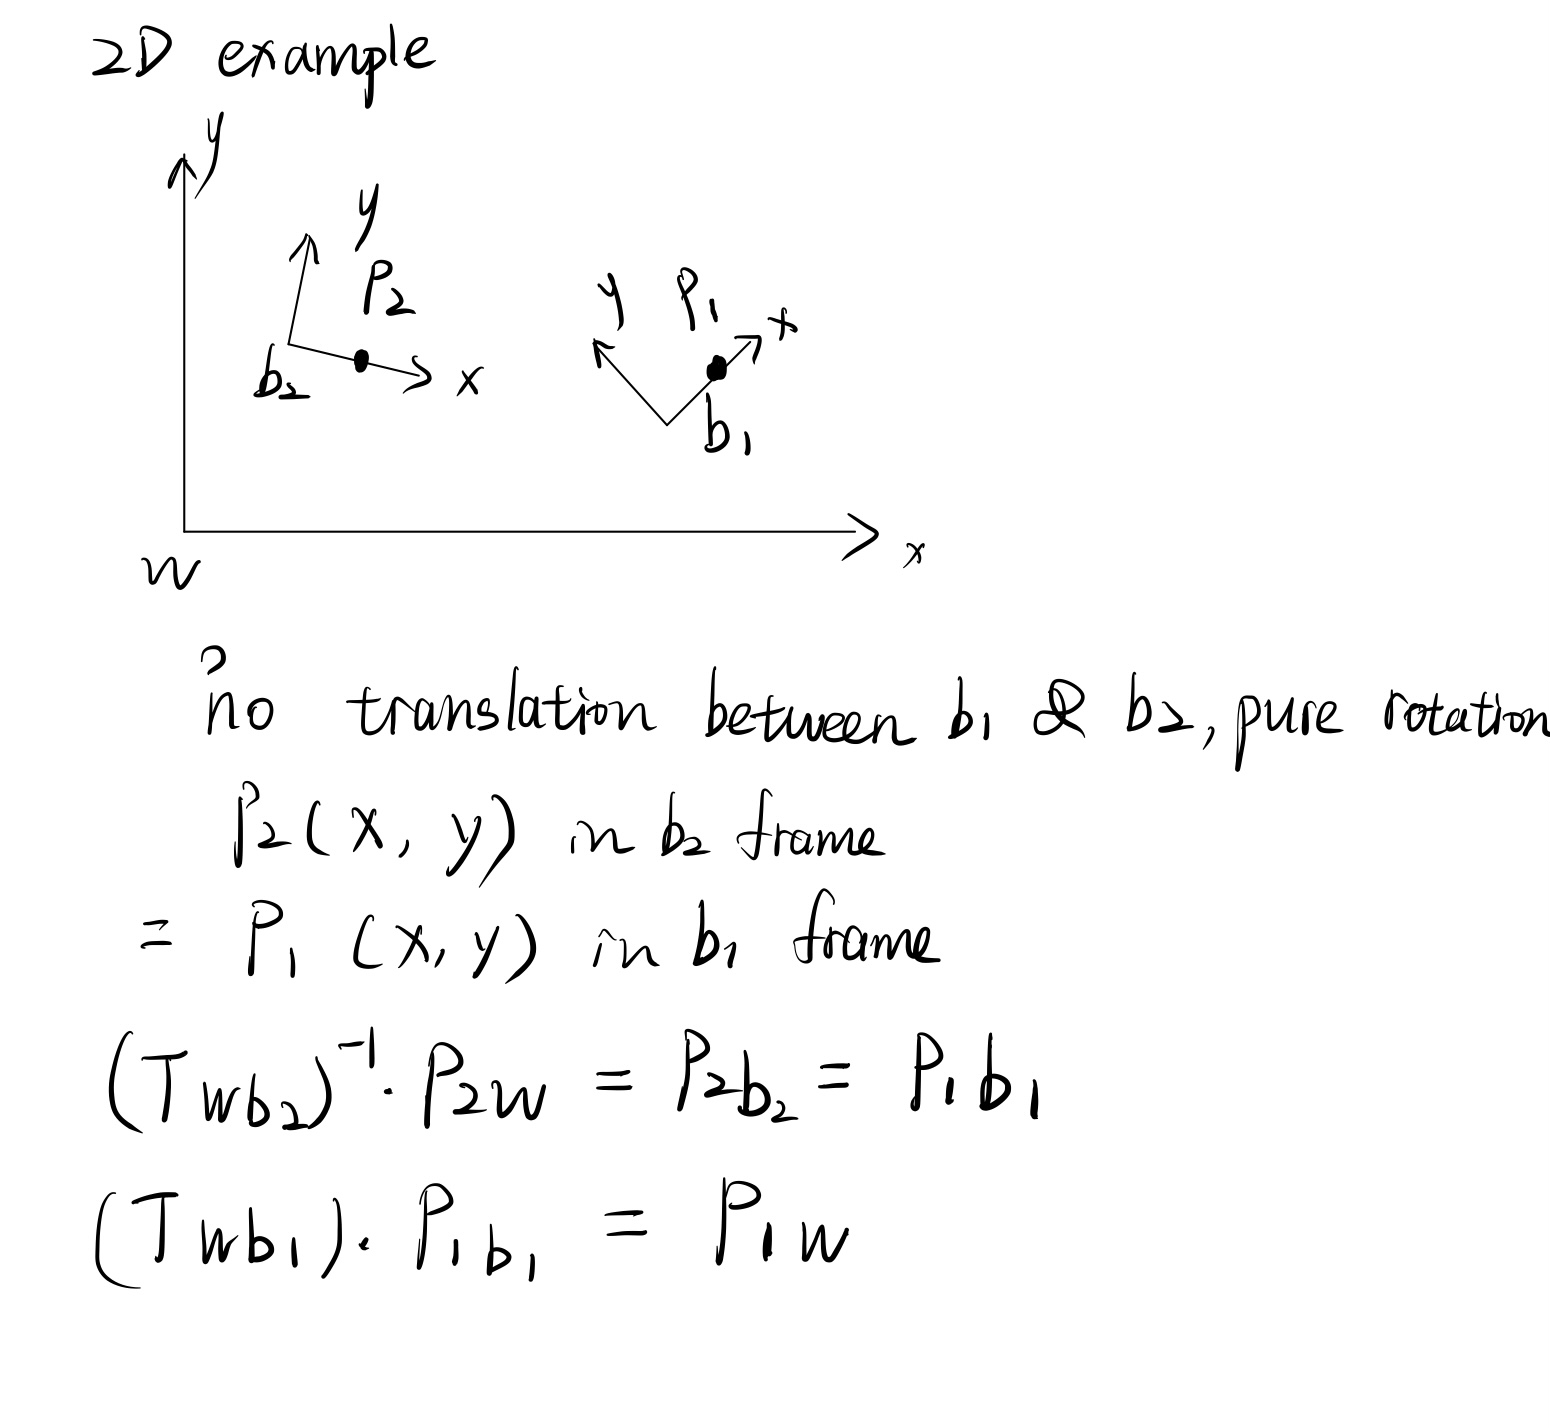 2D example
y
y
P2
y P1 x
b2 x
b1
x
W
no translation between b1 & b2, pure rotation
P2(x, y) in b2 frame
= P1 (x, y) in b1 frame
(Twb2)⁻¹ · P2w = P2b2 = P1b1
(Twb1) · P1b1 = P1w